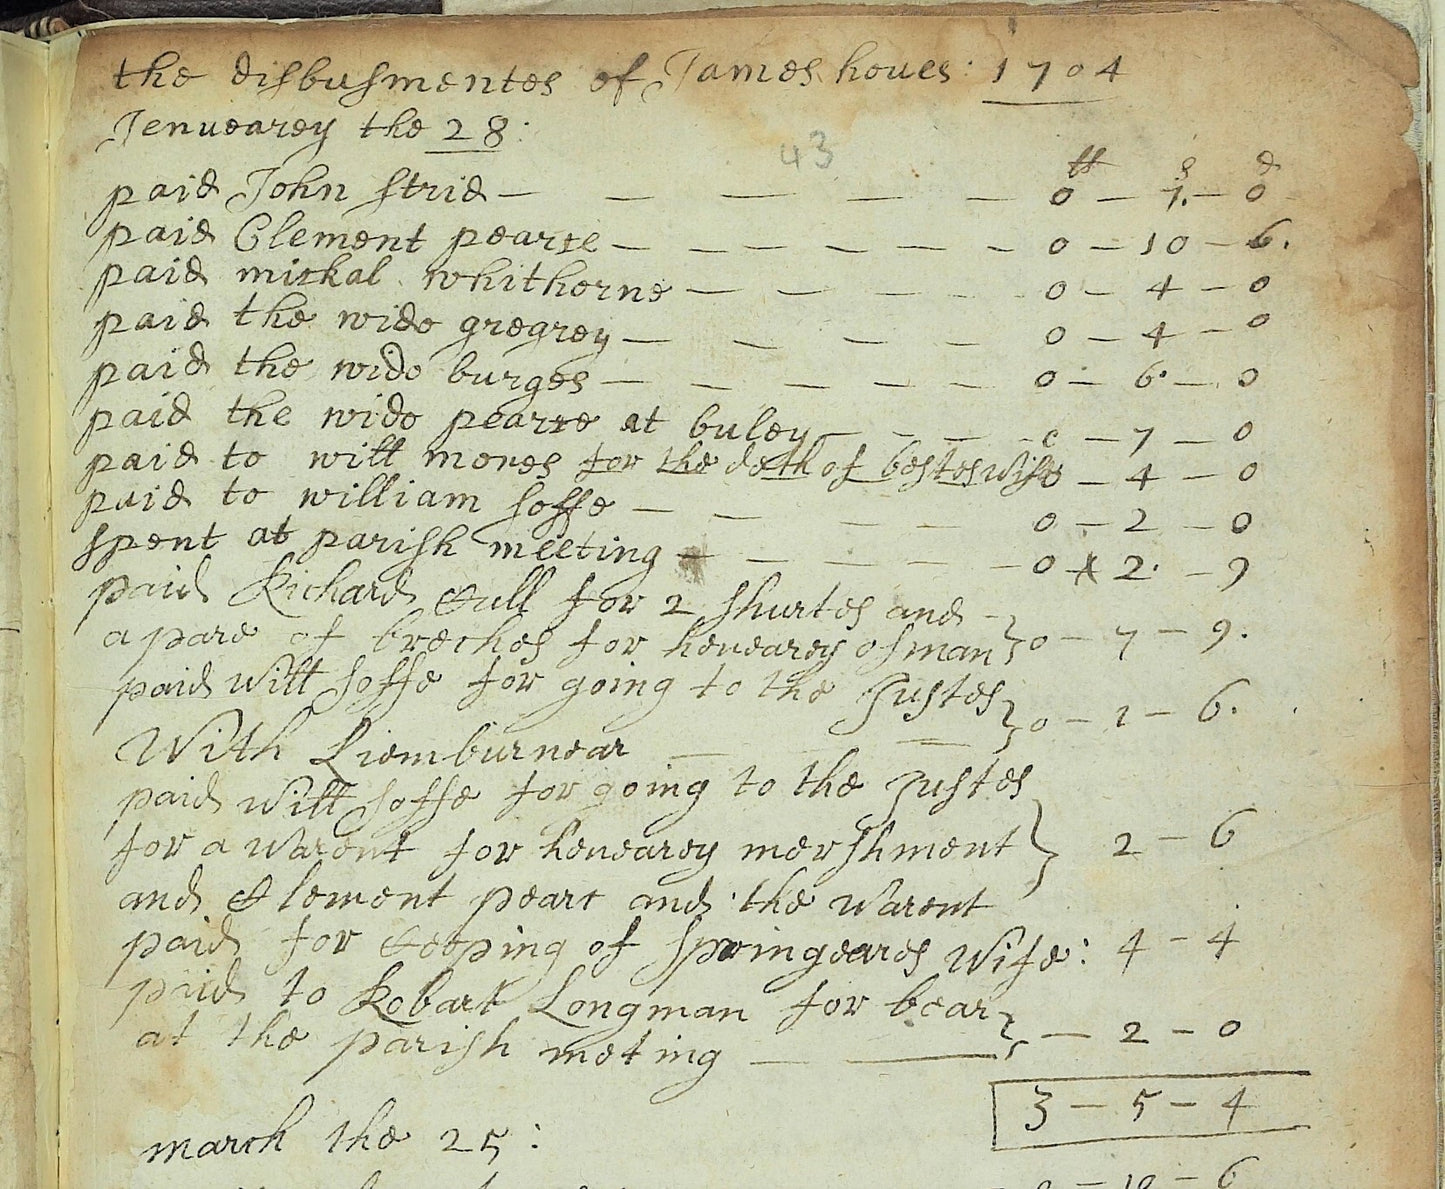 the disbusmentes of James houes: 1704
Jenuearey the 28:
43
tt s d
paid John Strid — — — — — 0 — 7. — 0
paid Clement pearce — — — — — — 0 — 10 — 6.
paid mickal whithorne — — — — 0 — 4 — 0
paid the wido gregrey — — — — 0 — 4 — 0
paid the wido burges — — — — — 0 — 6 — 0
paid the wido pearce at buley — — — 0 — 7 — 0
paid to will mores for the deth of bestes wife — 4 — 0
paid to william soffe — — — — 0 — 2 — 0
spent at parish meeting — — — — — 0 — 2 — 9
paid Richard Cull for 2 shurtes and —
a pare of breches for henearey osman } 0 — 7 — 9.
paid will soffe for going to the Justes } 0 — 1 — 6.
With Liemburnear — —
paid will soffe for going to the Justes
for a Warent for henearey mershment } 2 — 6
and Clement pearc and the Warent
paid for Ceeping of springeares Wife: 4 — 4
paid to Robart Longman for bear
at the parish meting — — } — 2 — 0
3 — 5 — 4
march the 25:
0 — 10 — 6